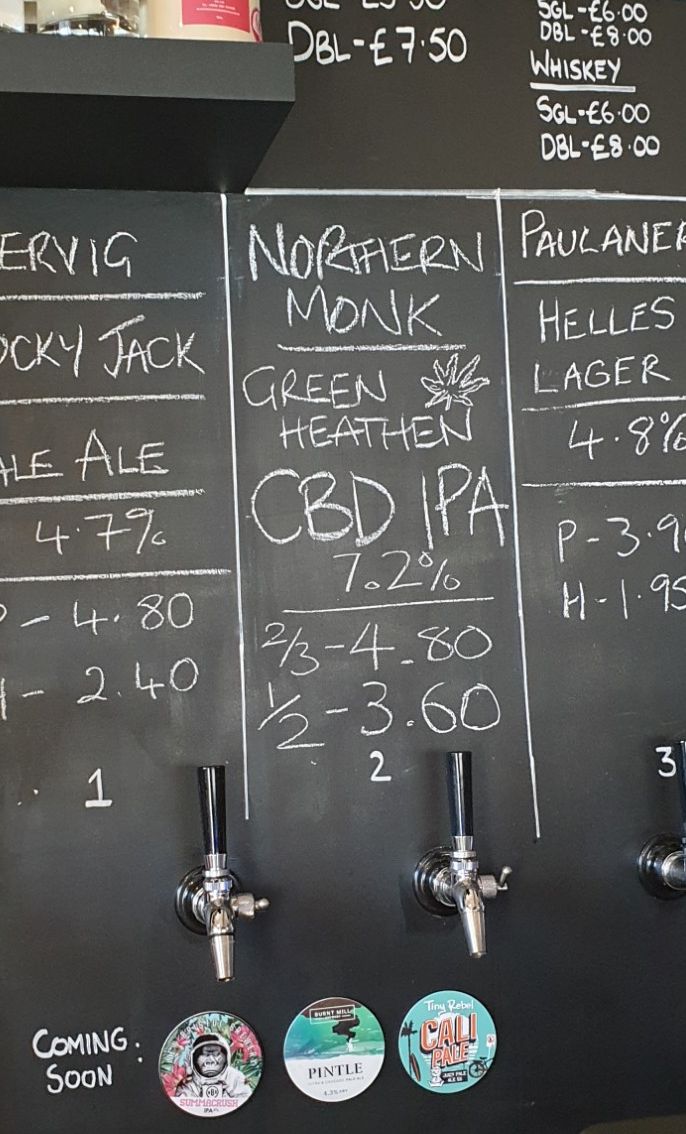 DBL-£7.50
SGL-£6.00
DBL-£8.00
WHISKEY
SGL-£6.00
DBL-£8.00
ERVIG
OCKY JACK
ALE ALE
4.7%
P - 4.80
H - 2.40
1
NORTHERN
MONK
GREEN
HEATHEN
CBD IPA
7.2%
2/3-4.80
1/2-3.60
2
PAULANER
HELLES
LAGER
4.8%
P-3.9
H-1.95
3
COMING:
SOON
SUMMACRUSH
IPA
BURNT MILL
PINTLE
4.3%
Tiny Rebel
CALI
PALE
JUICY PALE